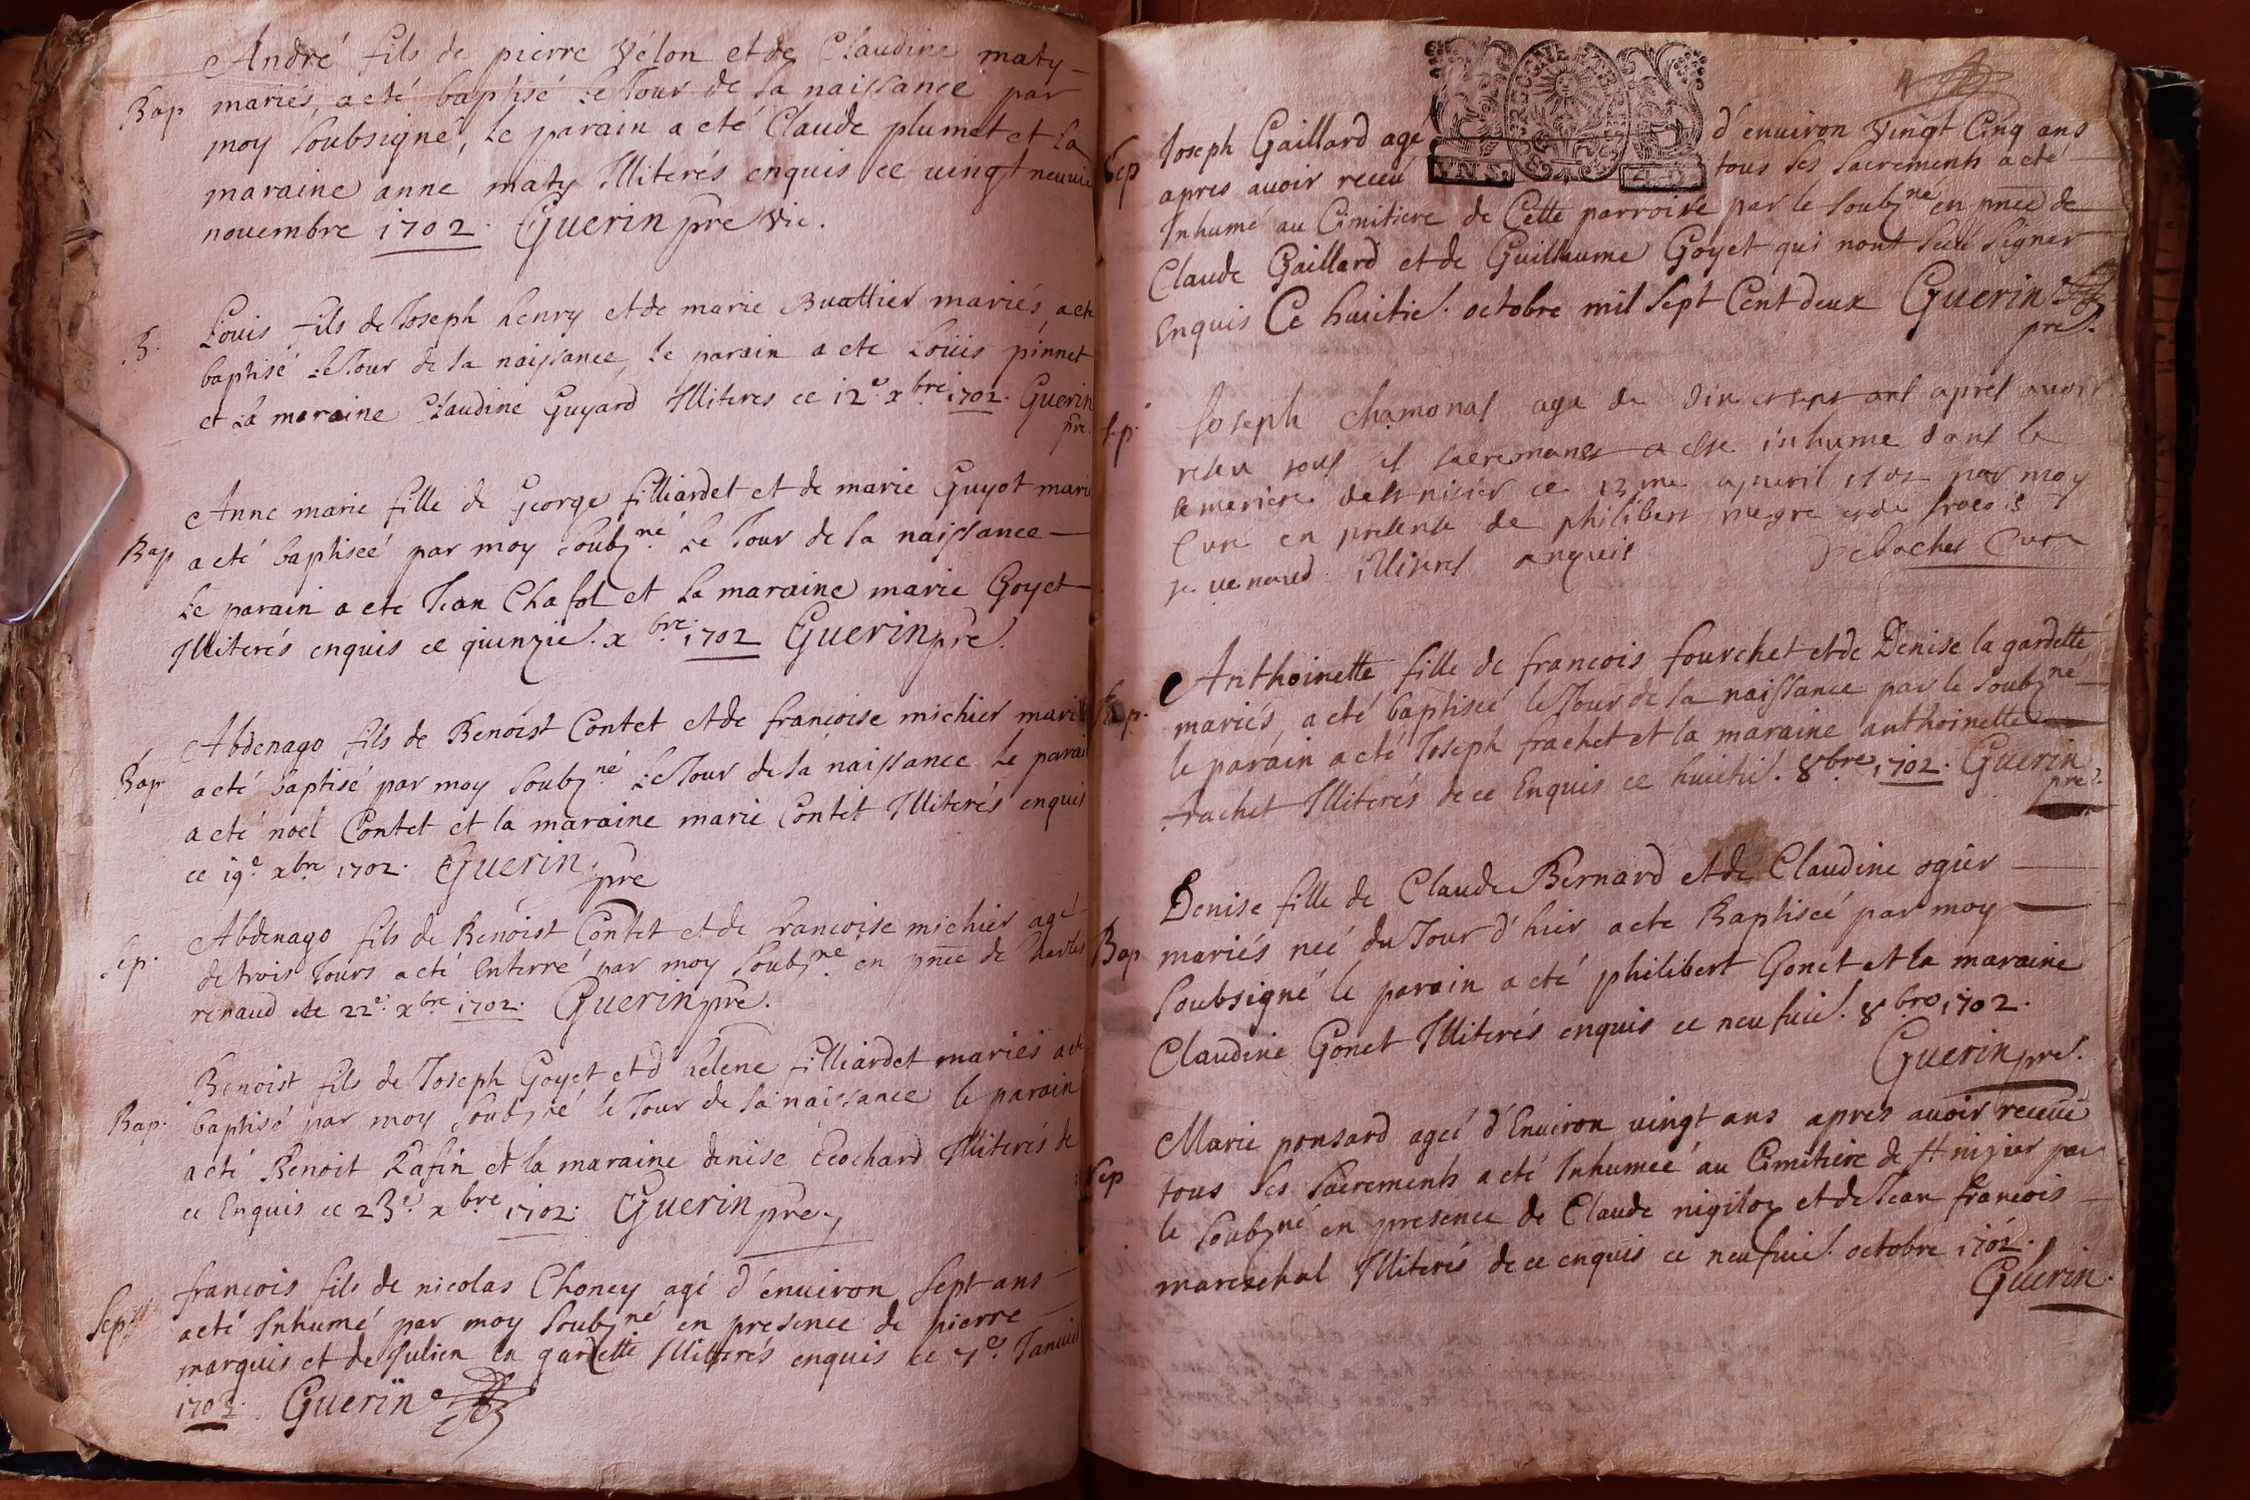 André fils de pierre Vélon et de Claudine maty
Bap mariés, a eté baptisé Le Jour de sa naissance par
moy soubsigné, Le parain a eté Claude plumet et La
maraine anne maty Illiterés enquis ce vingt neuvie
novembre 1702. Guerin pre Vic.
Louis fils de Joseph henry et de marie Buattier mariés, a ete
B. baptisé Le Jour de sa naissance, Le parain a ete Loüis pinnet
et La maraine Claudine Guyard Illiteres ce 12e xbre 1702. Guerin
pre.
Anne marie fille de George filliardet et de marie Guyot mari
Bap a eté baptiseé par moy soubzné Le Jour de sa naissance
Le parain a ete Jean Chafol et La maraine marie Goyet
Illiterés enquis ce quinzie. xbre 1702 Guerin pre.
Abdenago fils de Benoist Contet et de francoise michier marié
Bap. a eté baptisé par moy soubzné Le Jour de sa naissance Le parai
a eté noel Contet et la maraine marie Contet Illiterés enquis
ce 19e xbre 1702. Guerin
pre
Abdenago fils de Benoist Contet et de francoise michier agé
Sep. de trois Jours a eté Enterré par moy soubzné en pnce de Charles
renaud ce 22e xbre 1702. Guerin pre.
Benoist fils de Joseph Goyet et d helene filliardet mariés a ete
Bap. baptisé par moy soubzné le Jour de sa naissance le parain
a eté Benoit Lafin et la maraine denise Léochard Illiterés de
ce Enquis ce 23e xbre 1702. Guerin pre
francois fils de nicolas Choney agé d'environ sept ans
Sep. a eté Inhumé par moy soubzné en presence de pierre
marquis et de Julien la gardette Illiterés enquis ce 7e Janvie
1703. Guerin
Sep Joseph Gaillard agé d'environ vingt Cinq ans
apres avoir receu tous ses sacrements a eté
Inhumé au Cimitiere de Cette parroisse par le soubzné en pnce de
Claude Gaillard et de Guillaume Goyet qui nont sceu signer
Enquis Ce huictie. octobre mil sept Cent deux Guerin
pre.
Sep. Joseph chamonal age de dix et sept ans apres avoir
reseu tous sacremans a este inhume dans le
semetiere de St nisier ce 13me apveril 1702 par moy
Cure en presense de philibert negre et de frocois
illiteres anquis Desbaches Cure
Anthoinette fille de francois fourchet et de Denise la gardette
Bap. mariés, a eté baptiseé le Jour de sa naissance par le soubzné
le parain a eté Joseph frachet et la maraine anthoinette
frachet Illiterés de ce Enquis ce huictie. 8bre 1702. Guerin
pre.
Denise fille de Claude Bernard et de Claudine ogier
Bap mariés neé du Jour d'hier a ete Baptiseé par moy
soubsigné le parain a eté philibert Gonet et la maraine
Claudine Gonet Illiterés enquis ce neufuie. 8bre 1702.
Guerin pre.
Marie ponsard ageé d'Environ vingt ans apres avoir receüe
Sep tous ses sacrements a eté Inhumeé au Cimitiere de St nizier par
le soubzné en presence de Claude nigitoz et de Jean francois
mareschal Illiterés de ce enquis ce neufuie. octobre 1702.
Guerin.